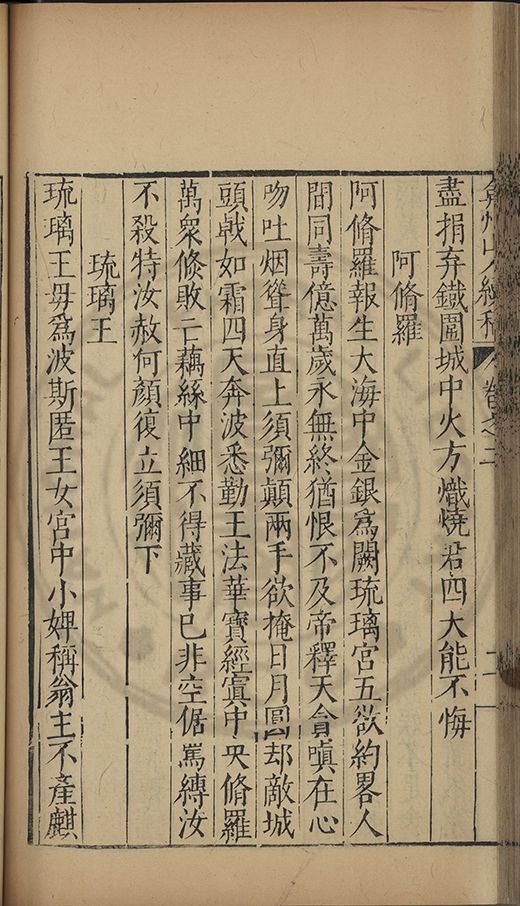 弇州山人續稿 卷之二
盡捐弃鐵圍城中火方熾燒君四大能不悔
阿脩羅
阿脩羅報生大海中金銀爲闕琉璃宮五欲約畧人
間同壽億萬歲永無終猶恨不及帝釋天貪嗔在心
吻吐烟聳身直上須彌顛兩手欲掩日月圓却敵城
頭戟如霜四天奔波悉勤王法華寶經寘中央脩羅
萬衆倐敗亡藕絲中細不得藏事已非空倨罵縛汝
不殺特汝赦何顏復立須彌下
琉璃王
琉璃王毋爲波斯匿王女宮中小婢稱翁主不產麒